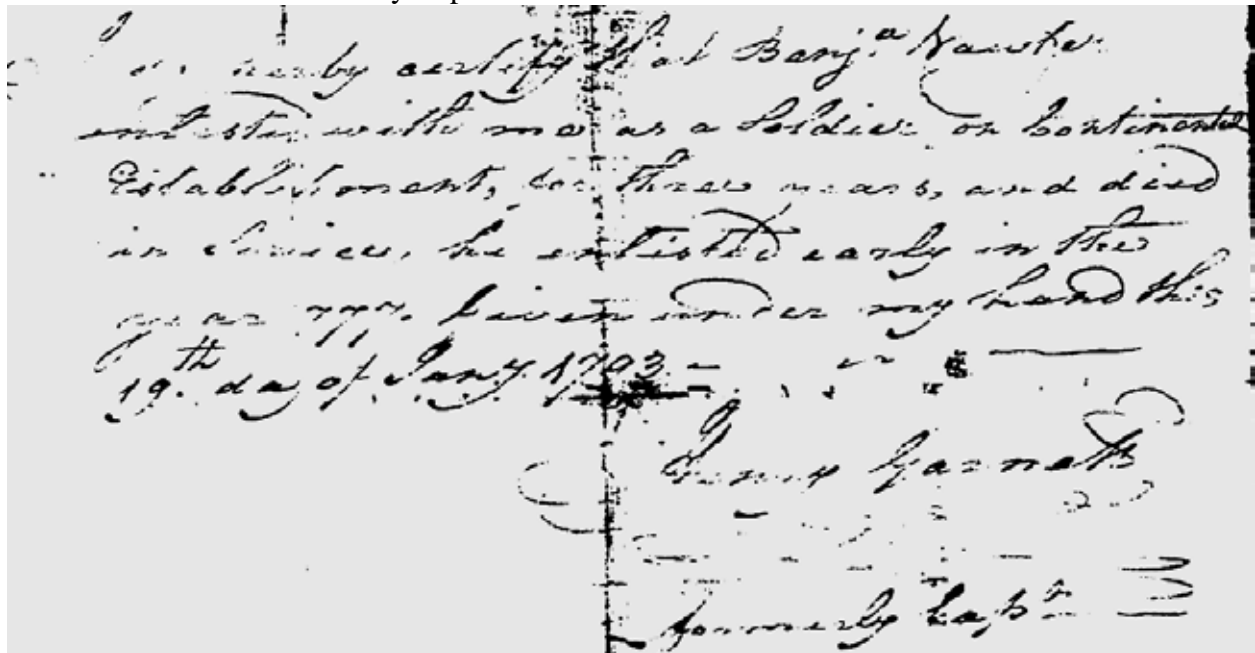 I do hereby certify that Benjª Hawke
enlisted with me as a Soldier on Continental
Establishment, for three years, and died
in Service, he enlisted early in the
year 777. Given under my hand this
19.th day of Jany. 1783
Henry Garnett
formerly Capt